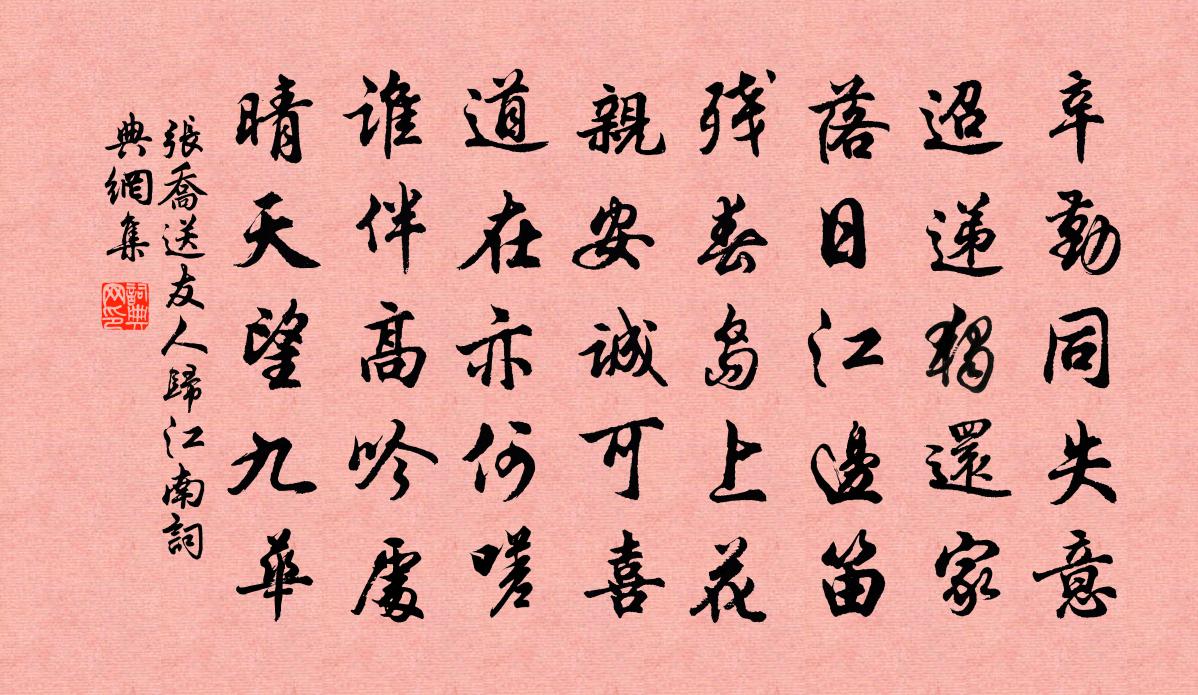 辛勤同失意
迢递獨還家
落日江邊笛
残春島上花
親安誠可喜
道在亦何嗟
誰伴高吟處
晴天望九華
張喬送友人歸江南詞
典網集
詞典
网印